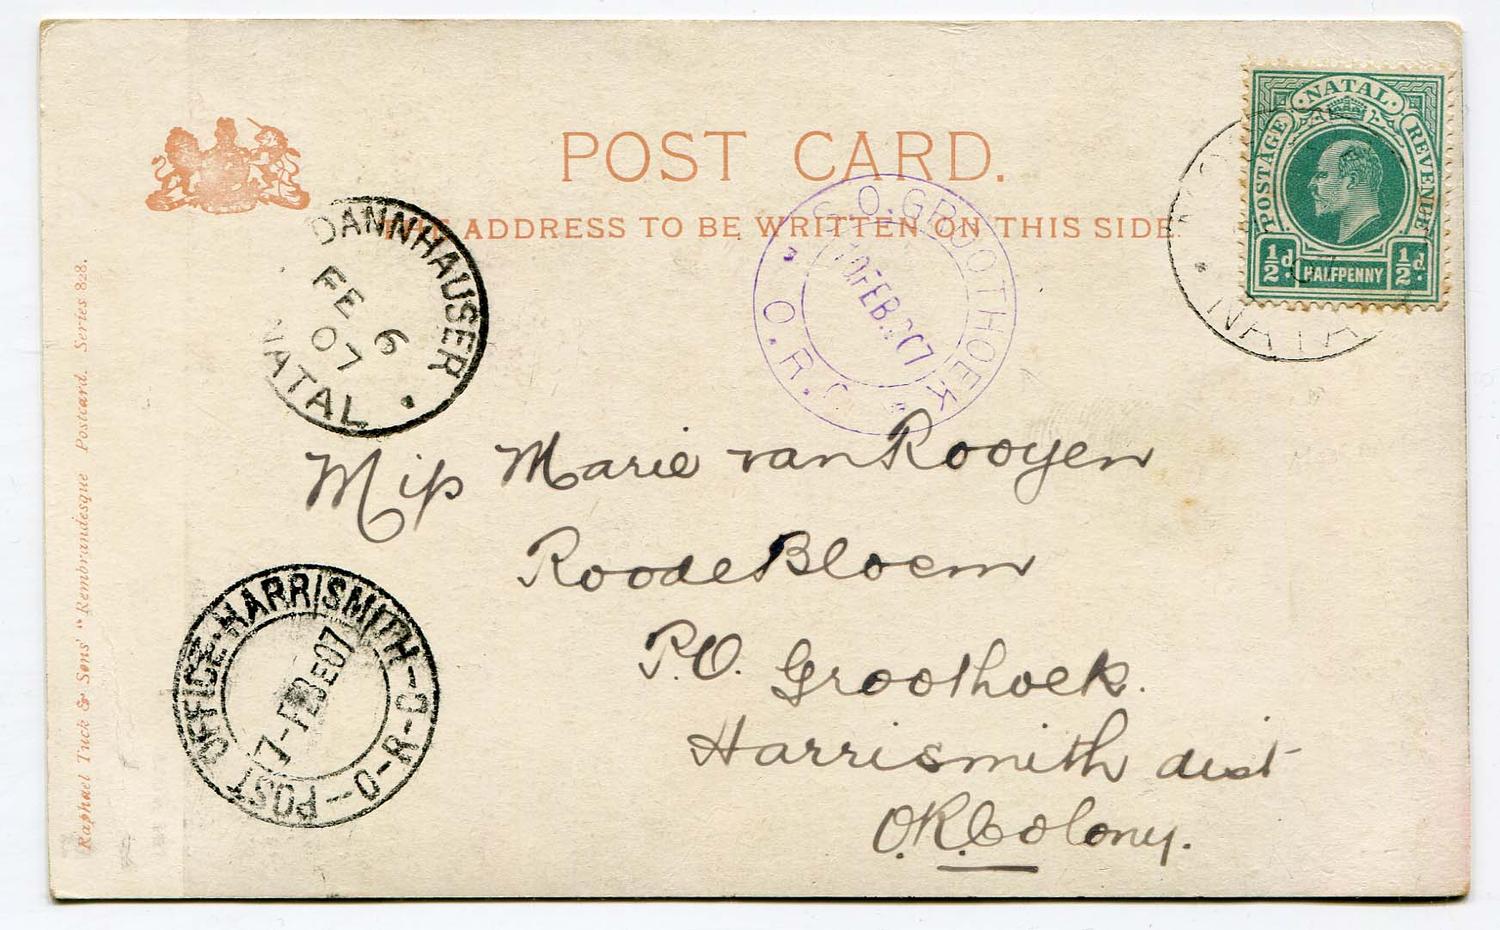 POST CARD.
THE ADDRESS TO BE WRITTEN ON THIS SIDE.
NATAL
POSTAGE
REVENUE
½d HALFPENNY ½d.
NATAL
DANNHAUSER
FE 6
07
NATAL
P.O. GROOTHOEK
10 FEB.07
O.R.C.
Miss Marie van Rooyen
Roode Bloem
P.O. Groothoek.
Harrismith dist
O.R. Colony.
POST OFFICE-HARRISMITH-O-R-C
7-FEB 07
Raphael Tuck & Sons' "Rembrandesque Postcard. Series 828.